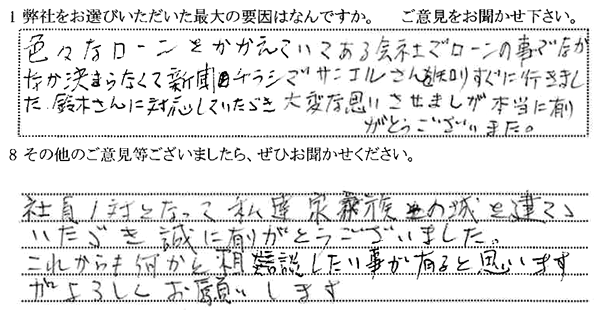 1 弊社をお選びいただいた最大の要因はなんですか。　ご意見をお聞かせ下さい。
色々なローンとかかえていてある会社でローンの事でなか
なか決まらなくて新聞チラシでサンエルさんを知りすぐに行きまし
た。鈴木さんに対応していただき大変な思いさせましが本当に有り
がとうございました。
8 その他のご意見等ございましたら、ぜひお聞かせください。
社員1対となって私達家族の城を建てて
いただき誠に有りがとうございました。
これからも何かと相談したい事が有ると思います
がよろしくお願いします